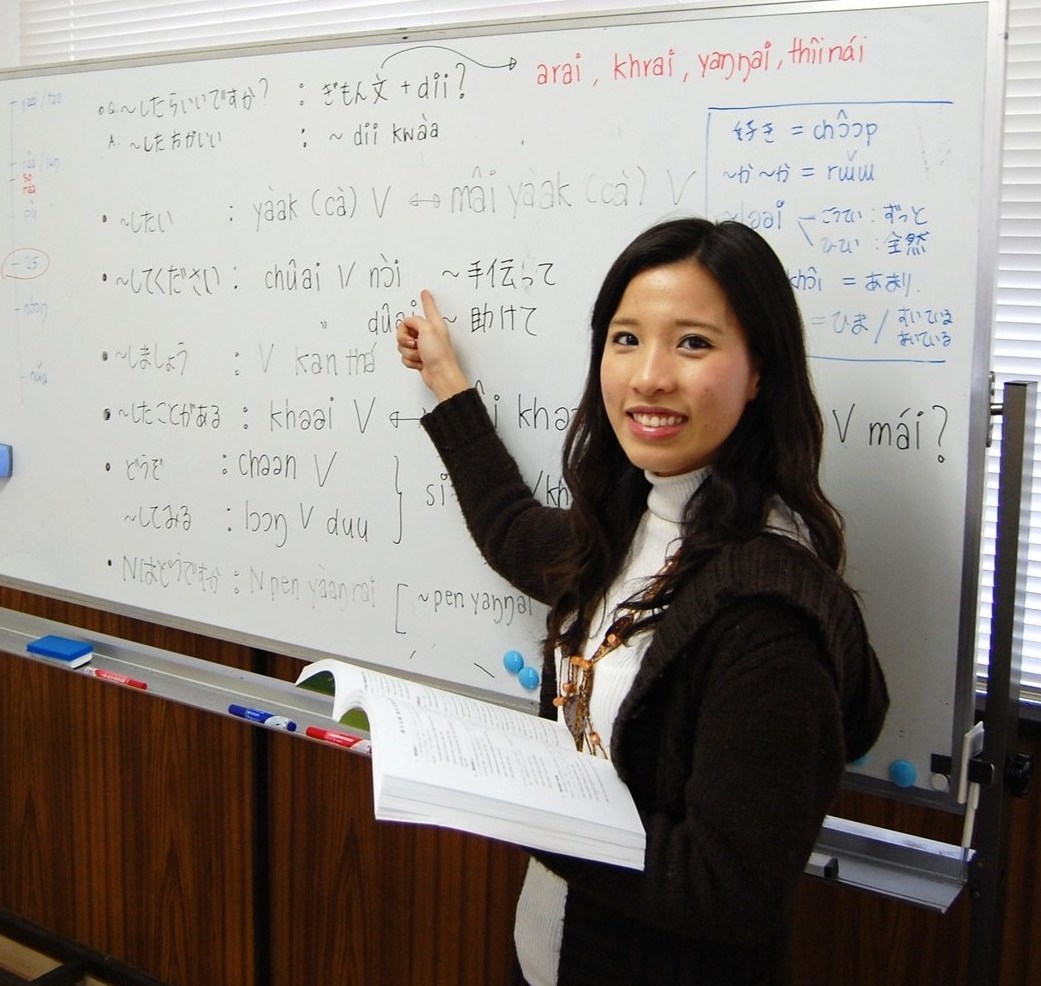 arai , khrai , yaŋŋai , thîinǎi
Q. ~したらいいですか? : ぎもん文 + dii?
A. ~した方がいい : ~ dii kwàa
• ~したい : yàak (cà) V ↔ mâi yàak (cà) V
• ~してください : chûai V nɔ̀i ~ 手伝って
" dûai ~ 助けて
• ~しましょう : V kan
• ~したことがある : khəəi V ↔ V mái?
• どうぞ : chəən V
~してみる : lɔɔŋ V duu
• Nはどうですか : N pen yàaŋrai [ ~ pen yaŋŋai
好き = chɔ̂ɔp
~か~か = rɯ̌ɯ
ləəi こうてい : ずっと
ひてい : 全然
khɔ̂i = あまり
= ひま / すいている
あいている
25